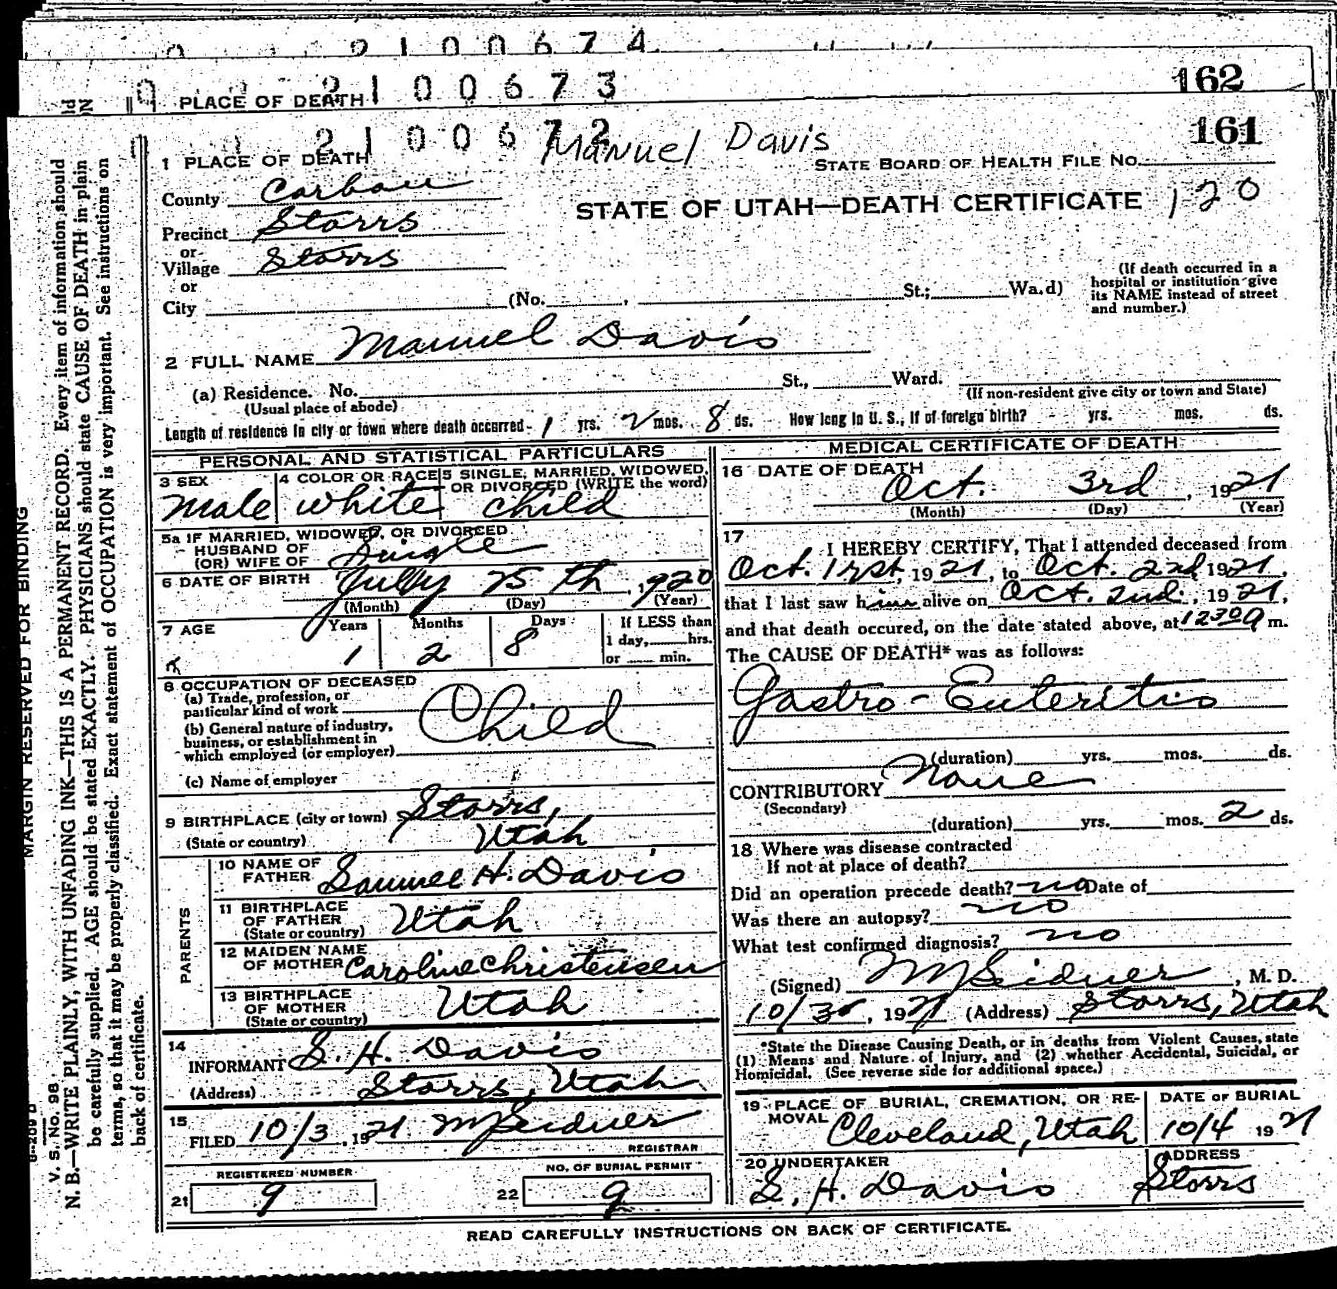 2 1 0 0 6 7 4
2 1 0 0 6 7 3
162
PLACE OF DEATH
2 1 0 0 6 7 2
Manuel Davis
161
1 PLACE OF DEATH
STATE BOARD OF HEALTH FILE No.
County Carbon
STATE OF UTAH—DEATH CERTIFICATE 120
Precinct Storrs
or
Village Storrs
or
City (No. , St.; Wa.d)
(If death occurred in a
hospital or institution give
its NAME instead of street
and number.)
2 FULL NAME Manuel Davis
(a) Residence. No. St., Ward.
(Usual place of abode) (If non-resident give city or town and State)
Length of residence in city or town where death occurred - 1 yrs. 2 mos. 8 ds. How long in U. S., if of foreign birth? - yrs. mos. ds.
PERSONAL AND STATISTICAL PARTICULARS
3 SEX
male
4 COLOR OR RACE
white
5 SINGLE, MARRIED, WIDOWED,
OR DIVORCED (WRITE the word)
child
5a IF MARRIED, WIDOWED, OR DIVORCED
HUSBAND OF
(OR) WIFE OF Single
6 DATE OF BIRTH July 25 th, 1920
(Month) (Day) (Year)
7 AGE Years Months Days If LESS than
1 day, hrs.
or min.
1 2 8
8 OCCUPATION OF DECEASED
(a) Trade, profession, or
particular kind of work
(b) General nature of industry,
business, or establishment in
which employed (or employer)
Child
(c) Name of employer
9 BIRTHPLACE (city or town) Storrs,
(State or country) Utah
PARENTS
10 NAME OF
FATHER Samuel H. Davis
11 BIRTHPLACE
OF FATHER
(State or country) Utah
12 MAIDEN NAME
OF MOTHER Caroline Christensen
13 BIRTHPLACE
OF MOTHER
(State or country) Utah
14
INFORMANT S. H. Davis
(Address) Storrs, Utah
15
FILED 10/3, 1921. M P Seidner
REGISTRAR
REGISTERED NUMBER
21 9
NO. OF BURIAL PERMIT
22 9
MEDICAL CERTIFICATE OF DEATH
16 DATE OF DEATH
Oct. 3rd, 1921
(Month) (Day) (Year)
17
I HEREBY CERTIFY, That I attended deceased from
Oct. 1rst, 1921, to Oct. 2nd 1921,
that I last saw him alive on Oct. 2nd., 1921,
and that death occured, on the date stated above, at 1230 a m.
The CAUSE OF DEATH* was as follows:
Gastro-Enteritis
(duration) yrs. mos. ds.
CONTRIBUTORY None
(Secondary)
(duration) yrs. mos. 2 ds.
18 Where was disease contracted
If not at place of death?
Did an operation precede death? no Date of
Was there an autopsy? no
What test confirmed diagnosis? no
(Signed) M P Seidner, M. D.
10/3, 1921 (Address) Storrs, Utah
*State the Disease Causing Death, or in deaths from Violent Causes, state
(1) Means and Nature of Injury, and (2) whether Accidental, Suicidal, or
Homicidal. (See reverse side for additional space.)
19 PLACE OF BURIAL, CREMATION, OR RE-
MOVAL
Cleveland, Utah
DATE OF BURIAL
10/4 1921
20 UNDERTAKER
S. H. Davis
ADDRESS
Storrs
READ CAREFULLY INSTRUCTIONS ON BACK OF CERTIFICATE.
MARGIN RESERVED FOR BINDING
V. S. No. 98
N. B.—WRITE PLAINLY, WITH UNFADING INK—THIS IS A PERMANENT RECORD. Every item of information should
be carefully supplied. AGE should be stated EXACTLY. PHYSICIANS should state CAUSE OF DEATH in plain
terms, so that it may be properly classified. Exact statement of OCCUPATION is very important. See instructions on
back of certificate.